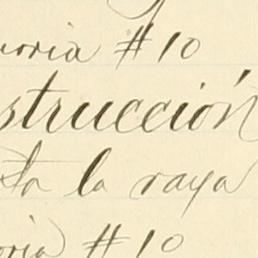 oria #10
strucción
ta la raya
oria #10